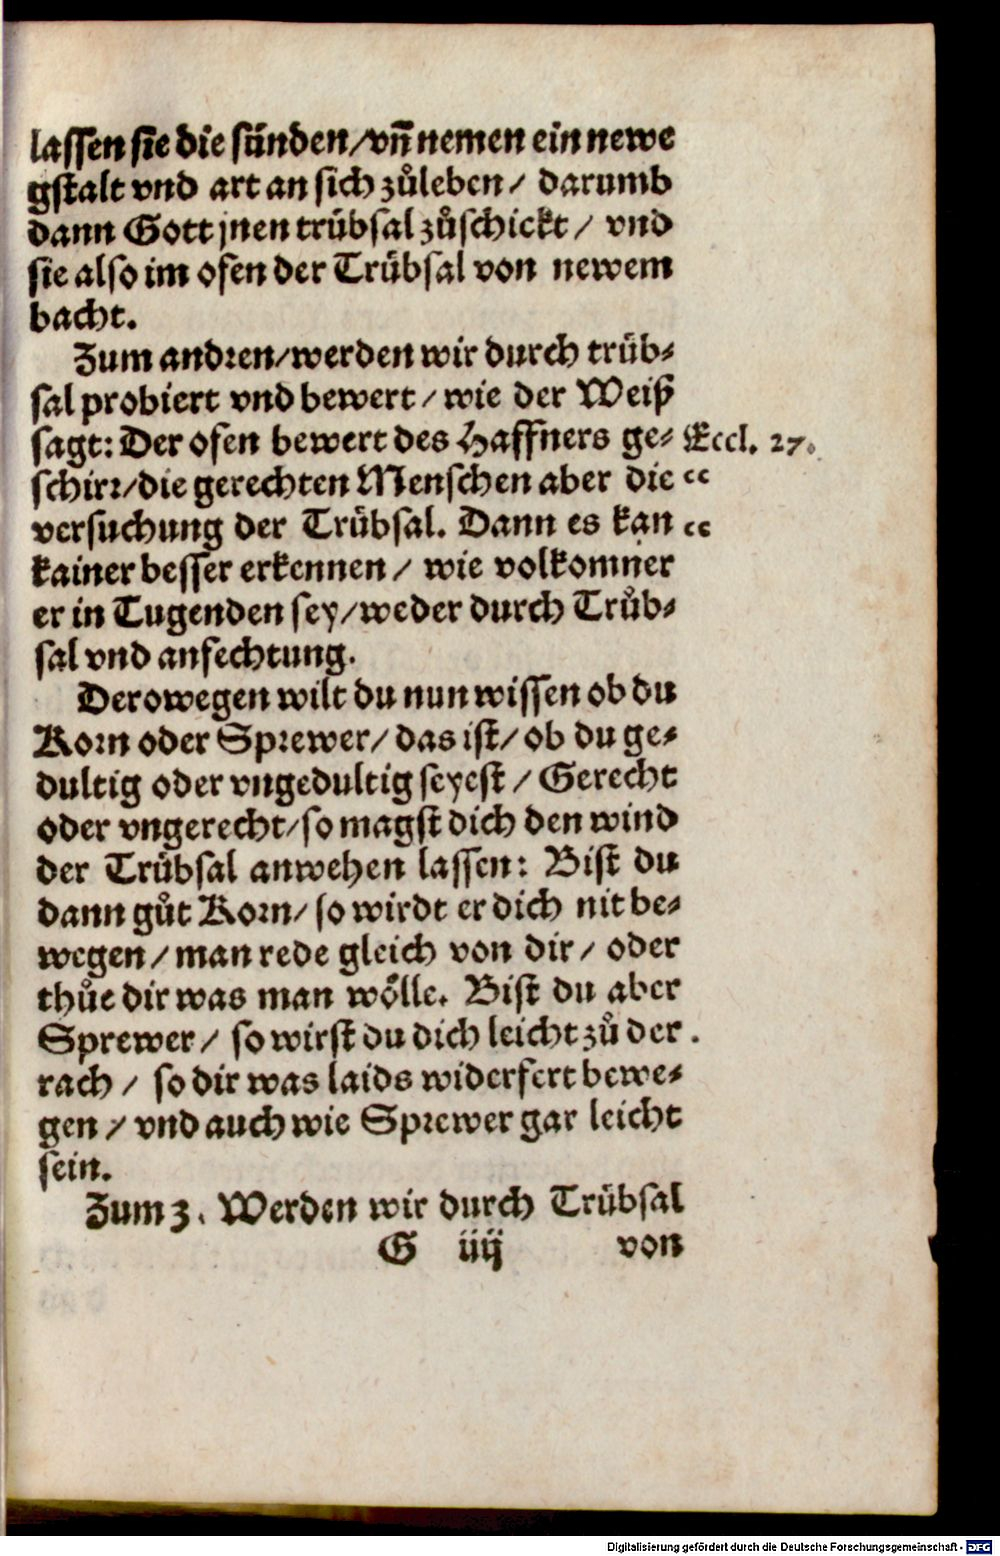 lassen sie die sünden/vñ nemen ein newe
gstalt vnd art an sich zůleben/ darumb
dann Gott jnen trübsal zůschickt/ vnd
sie also im ofen der Trübsal von newem
bacht.
Zum andren/werden wir durch trüb-
sal probiert vnd bewert/wie der Weiß
sagt: Der ofen bewert des Haffners ge- Eccl. 27.
schirr/die gerechten Menschen aber die “
versuchung der Trübsal. Dann es kan “
kainer besser erkennen/ wie volkomner
er in Tugenden sey/weder durch Trůb-
sal vnd anfechtung.
Derowegen wilt du nun wissen ob du
Korn oder Sprewer/das ist/ob du ge-
dultig oder vngedultig seyest/Gerecht
oder vngerecht/so magst dich den wind
der Trübsal anwehen lassen: Bist du
dann gůt Korn/so wirdt er dich nit be-
wegen/man rede gleich von dir/ oder
thůe dir was man wölle. Bist du aber
Sprewer/ so wirst du dich leicht zů der
rach/ so dir was laids widerfert bewe-
gen/vnd auch wie Sprewer gar leicht
sein.
Zum 3. Werden wir durch Trübsal
G iiij von
Digitalisierung gefördert durch die Deutsche Forschungsgemeinschaft - DFG